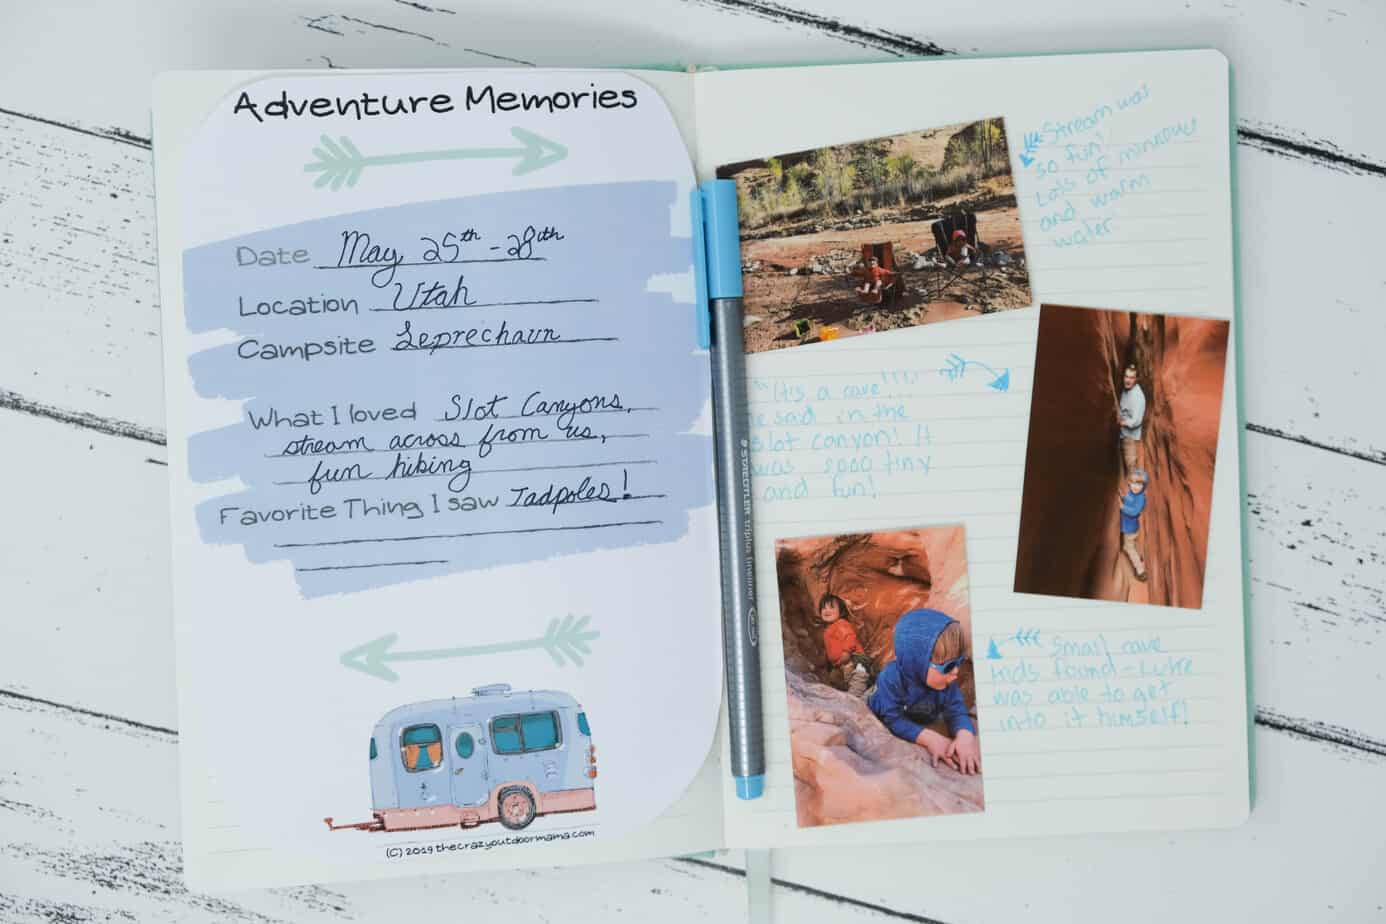 Adventure Memories
Date May 25th - 28th
Location Utah
Campsite Leprechaun
What I loved Slot Canyons,
stream across from us,
fun hiking
Favorite Thing I saw Tadpoles!
(C) 2019 thecrazyoutdoormama.com
STAEDTLER triplus fineliner
Stream was
so fun!
Lots of minnows
and warm
water
"It's a cave!!!"
he said in the
slot canyon! It
was sooo tiny
and fun!
Small cave
kids found - Luke
was able to get
into it himself!